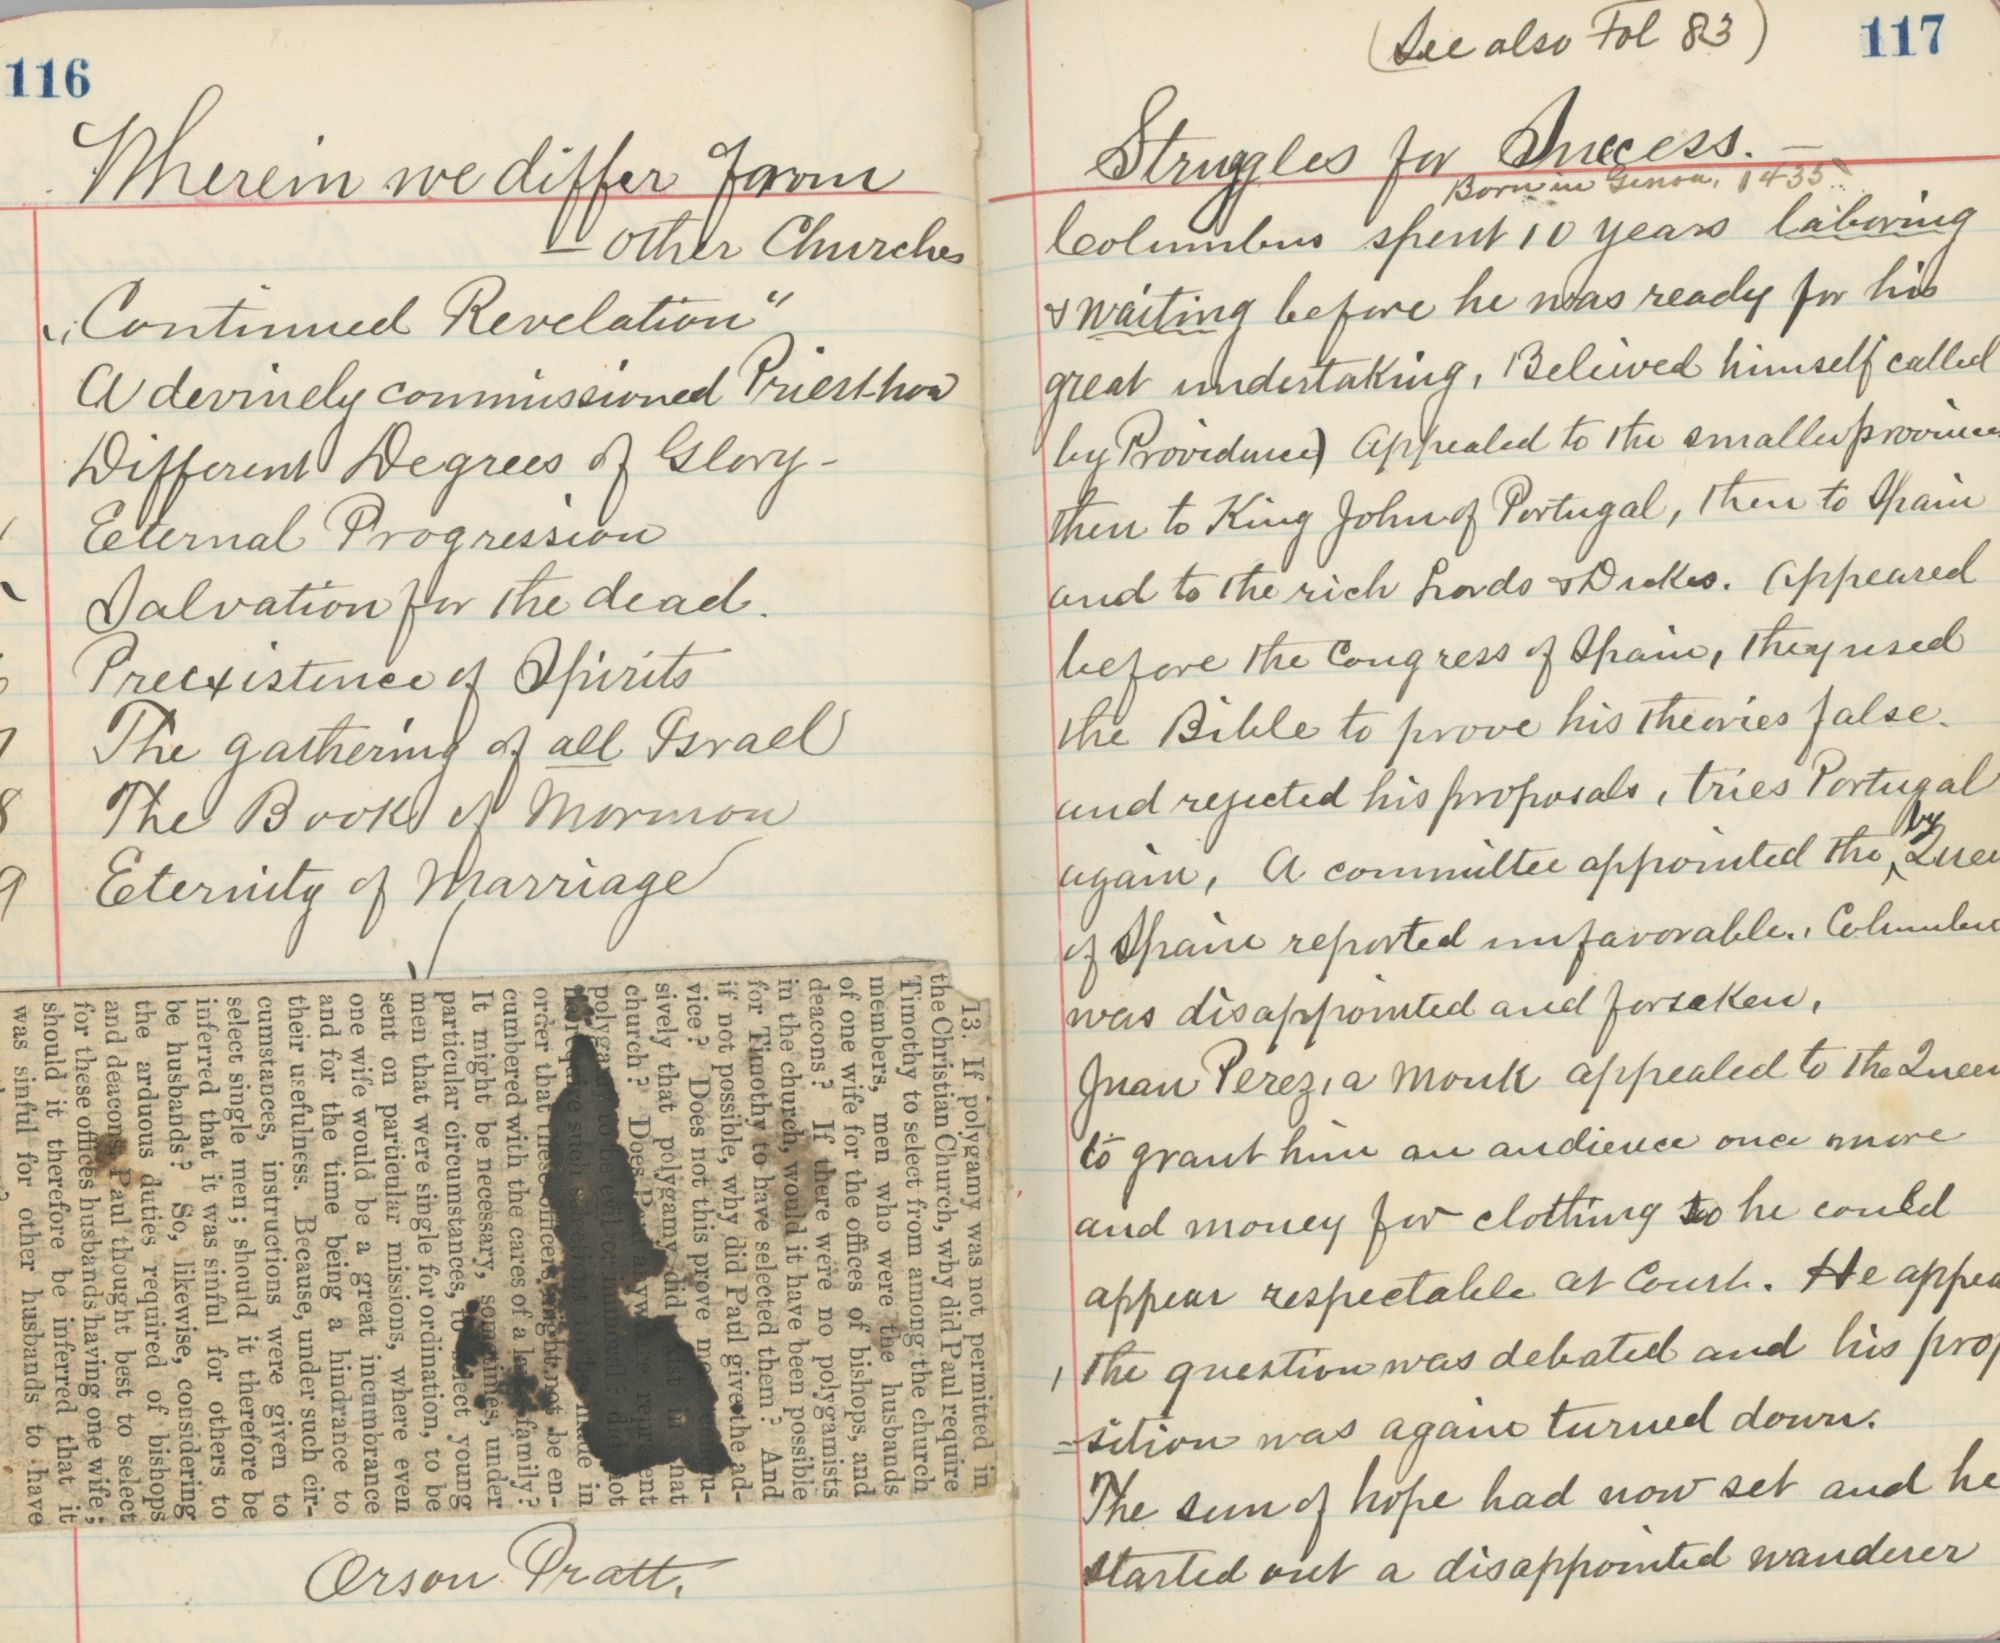 116
Wherein we differ from
– other Churches
„Continued Revelation"
A devinely commissioned Priest-hoo
Different Degrees of Glory -
Eternal Progression
Salvation for the dead.
Preexistence of Spirits
7 The gathering of all Israel
8 The Book of Mormon
9 Eternity of Marriage
13. If polygamy was not permitted in
the Christian Church, why did Paul require
Timothy to select from among the church
members, men who were the husbands
of one wife for the offices of bishops, and
deacons? If there were no polygamists
in the church, would it have been possible
for Timothy to have selected them? And
if not possible, why did Paul give the ad-
vice? Does not this prove
sively that polygamy did
church? Does
polygamy to be evil or criminal?
order that these officers might not be en-
cumbered with the cares of a family?
It might be necessary, sometimes, under
particular circumstances, to select young
men that were single for ordination, to be
sent on particular missions, where even
one wife would be a great incumbrance
and for the time being a hindrance to
their usefulness. Because, under such cir-
cumstances, instructions were given to
select single men; should it therefore be
inferred that it was sinful for others to
be husbands? So, likewise, considering
the arduous duties required of bishops
and deacons, Paul thought best to select
for these offices husbands having one wife;
should it therefore be inferred that it
was sinful for other husbands to have
Orson Pratt.
(See also Fol 83)
117
Struggles for Success. —
Born in Genoa, 1435
Columbus spent 10 years laboring
& waiting before he was ready for his
great undertaking, Believed himself called
by Providence) Appealed to the smaller province
then to King John of Portugal, then to Spain
and to the rich Lords & Dukes. Appeared
before the Congress of Spain, they used
the Bible to prove his theories false.
and rejected his proposals, tries Portugal
again, A committee appointed the by Queen
of Spain reported unfavorable., Columbus
was disappointed and forsaken.
Juan Perez, a Monk appealed to the Queen
to grant him an audience once more
and money for clothing so he could
appear respectable at Court. He appea
the question was debated and his prop
=sition was again turned down.
The sun of hope had now set and he
started out a disappointed wanderer